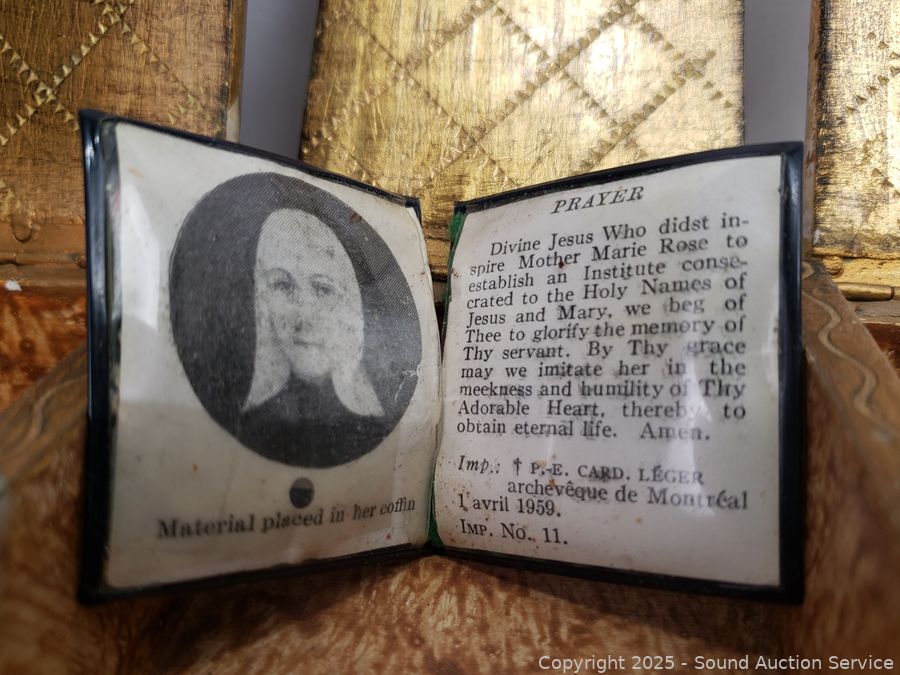 Material placed in her coffin
PRAYER
Divine Jesus Who didst in-
spire Mother Marie Rose to
establish an Institute conse-
crated to the Holy Names of
Jesus and Mary, we beg of
Thee to glorify the memory of
Thy servant. By Thy grace
may we imitate her in the
meekness and humility of Thy
Adorable Heart, thereby to
obtain eternal life. Amen.
Imp.: † P.-E. CARD. LÉGER
archevêque de Montréal
1 avril 1959.
IMP. No. 11.
Copyright © 2025 - Sound Auction Service